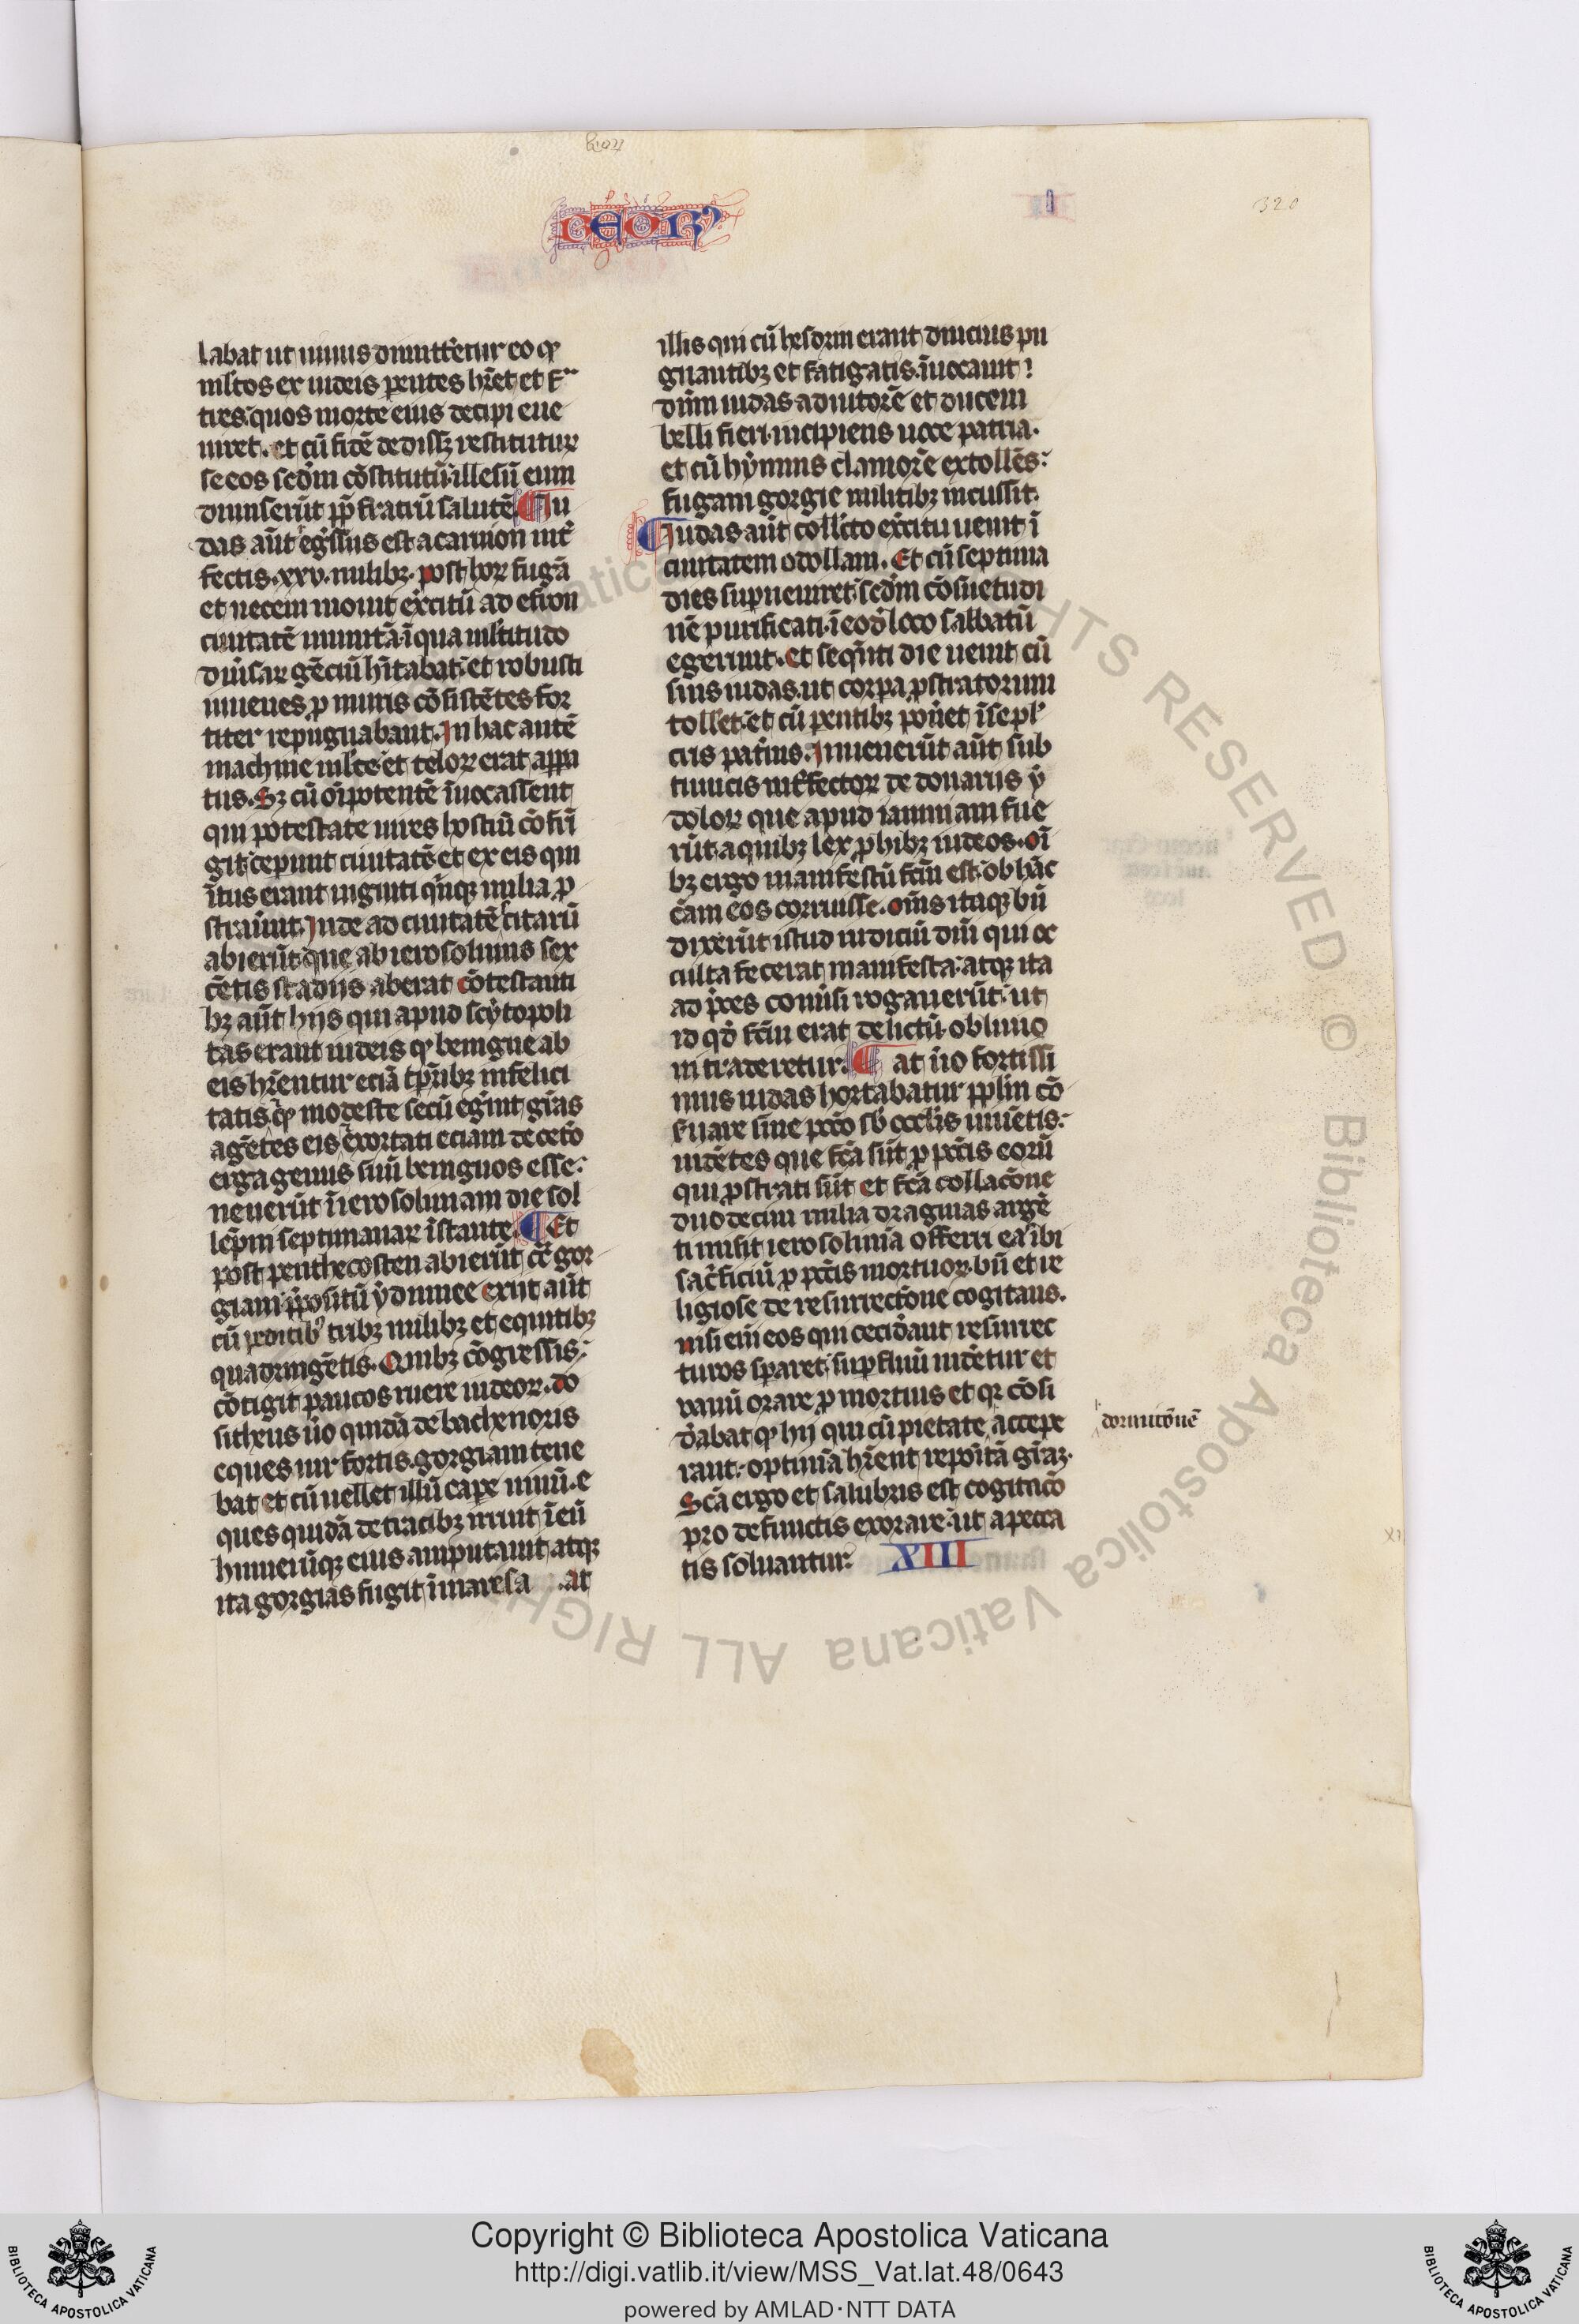 CEOR
I
320
labat ut uiuus dimitteretur eo qꝫ
mltos ex iudeis pentes hr̄et et fra
tres. quos morte eius decipi eue
niret. et cū fidē dedissꝫ restituturꝫ
se eos scdm cōstitutū. illesū eum
dimiserūt pp̄ fratrū salutē. Iu
das aūt egssus est a carnion int̄
fectis .xxv. milibꝫ. post hoꝝ fugā
et necem mouit exercitū ad efron
ciuitatē munitā. ī qua mltitudo
diūsaꝝ gēciū hītabat. et robusti
iuuenes p muris cōsistētes for
titer repugnabant. In hac autē
machine mlte et teloꝝ erat appa
tus. Sꝫ cū oīpotentē īuocassent
qui potestate uires hostiū cōfrī
git. ceperunt ciuitatē. et ex eis qui
ītus erant uiginti qnqꝫ milia p
strauūt. Inde ad ciuitatē citarū
abierūt que ab ierosolimis sex
cētis stadiis aberat contestanti
bꝫ aūt hijs qui apud scytopoli
tas erant iudeis qꝫ benigne ab
eis hr̄entur eciā tp̄ribꝫ infelici
tatis. qꝫ modeste secū egint gr̄as
agētes eis exortati eciam de cetō
erga genus suū benignos esse.
ueuerūt ī ierosolimam die sol
lēpni septimanaꝝ īstante. Et
post penthecosten abierūt cō gor
giam ppositū ydumee exiit aūt
cū peditibꝫ tribꝫ milibꝫ et equitibꝫ
quadringētis. Quibꝫ cōgressis.
cōtigit paucos ruere iudeoꝝ. do
sitheus ūo quidā de bachenoris
eques uir fortis. gorgiam tene
bat et cū uellet illū cape uiuū. e
ques quidā de tracibꝫ irruit ī eū
humerūqꝫ eius amputauit atqꝫ
ita gorgias fugit ī maresa at
illis qui cū hesdrin erant diucius pu
gnantibꝫ et fatigatis. īuocauit
dn̄m iudas adiutorē et ducem
belli fieri. incipiens uoce patria.
et cū hymnis clamorē extollēs.
fugam gorgie militibꝫ incussit.
Iudas aūt collecto exercitu uenit ī
ciuitatem odollam. Et cū septima
dies supueniret. scdm cōsuetudi
nē purificati. ī eodē loco sabbatū
egerunt. et sequēti die uenit cū
suis iudas. ut corpa pstratorum
tolleret. et cū parentibꝫ ponet ī sepl
cris pat̄nis. Inuenerūt aūt sub
tunicis int̄fectoꝝ de donariis y
doloꝝ que apud iamniam fue
rūt. a quibꝫ lex phibꝫ iudeos. oī
bꝫ ergo manifestū fcm̄ est. ob hāc
cām eos corruisse. oms itaqꝫ bn̄
dixerūt iustū iudiciū dn̄i qui oc
culta fecerat manifesta. atqꝫ ita
ad pces conuersi rogauerūt. ut
id qd̄ fcm̄ erat delictū. obliuio
ni traderetur. At ūo fortissi
mus iudas hortabatur pplm cō
seruare sine pctō sb oculis uidētis.
uidētes que fcā sūt p pctīs eorū
qui pstrati sūt et fcā collacōne
duodecim milia dragmas argē
ti misit ierosolimā offerri ea ibi
sacrficiū p pctīs mortuoꝝ. bn̄ et re
ligiose de resurrectōne cogitans.
nisi eni eos qui ceciderāt resurrec
turos speraret. supfluū uidētur et
vanū orare p mortuis et qꝛ cōsi
derabat qꝫ hij qui cū pietate accepe
rant. optimā hr̄ent repoitā gr̄aꝫ.
Scā ergo et salubris est cogitacō
pro defunctis exorare. ut a pecca
tis soluantur. XIII
dormicōnē
Copyright © Biblioteca Apostolica Vaticana
http://digi.vatlib.it/view/MSS_Vat.lat.48/0643
powered by AMLAD·NTT DATA
BIBLIOTECA APOSTOLICA VATICANA
BIBLIOTECA APOSTOLICA VATICANA
Biblioteca Apostolica Vaticana ALL RIGHTS RESERVED ©